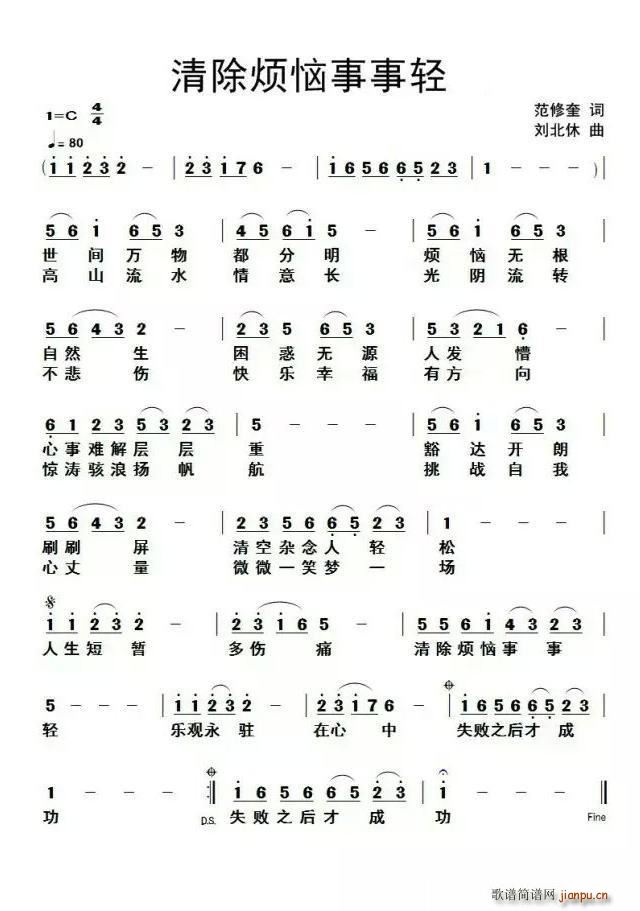 清除烦恼事事轻
1=C 4/4
范修奎 词
♩= 80
刘北休 曲
( 1 1 2 3 2 - | 2 3 1 7 6 - | 1 6 5 6 6 5 2 3 | 1 - - - ) |
5 6 1 6 5 3 | 4 5 6 1 5 - | 5 6 1 6 5 3 |
世 间 万 物 都 分 明 烦 恼 无 根
高 山 流 水 情 意 长 光 阴 流 转
5 6 4 3 2 - | 2 3 5 6 5 3 | 5 3 2 1 6 - |
自 然 生 困 惑 无 源 人 发 懵
不 悲 伤 快 乐 幸 福 有 方 向
6 1 2 3 5 3 2 3 | 5 - - - | 5 6 1 6 5 3 |
心 事 难 解 层 层 重 豁 达 开 朗
惊 涛 骇 浪 扬 帆 航 挑 战 自 我
5 6 4 3 2 - | 2 3 5 6 6 5 2 3 | 1 - - - |
刷 刷 屏 清 空 杂 念 人 轻 松
心 丈 量 微 微 一 笑 梦 一 场
1 1 2 3 2 - | 2 3 1 6 5 - | 5 5 6 1 4 3 2 3 |
人 生 短 暂 多 伤 痛 清 除 烦 恼 事 事
5 - - - | 1 1 2 3 2 - | 2 3 1 7 6 - | 1 6 5 6 6 5 2 3 |
轻 乐 观 永 驻 在 心 中 失 败 之 后 才 成
1 - - - :| 1 6 5 6 6 5 2 3 | 1 - - - |
功 D.S. 失 败 之 后 才 成 功 Fine
歌谱简谱网
jianpu.cn